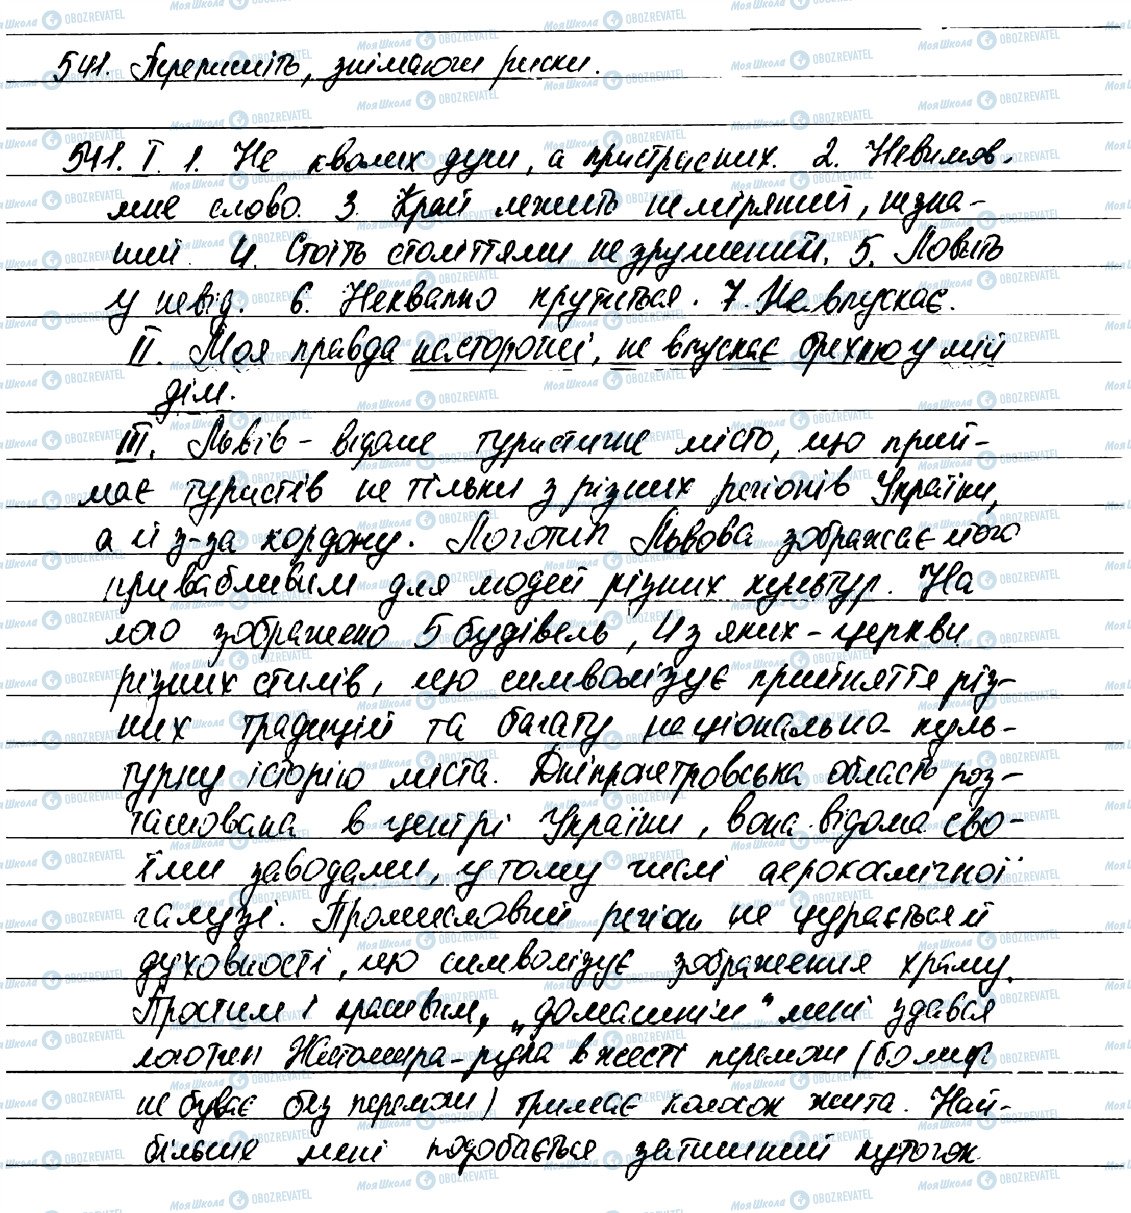 541. Перепишіть, знімаючи риски.
541. I. 1. Не кволих душ, а пристрасних. 2. Невимов-
ме слово. 3. Край лежить неміряний, незна-
ний. 4. Стоїть століттями незрушений. 5. Ловить
у невід. 6. Неквапно крутиться. 7. Не впускає.
II. Моя правда насторожі, не впускає брехню у мій
дім.
III. Львів - відоме туристичне місто, що прий-
має туристів не тільки з різних регіонів України,
а й з-за кордону. Логотип Львова зображає його
привабливим для людей різних культур. На
лого зображено 5 будівель, 4 з яких - церкви
різних стилів, що символізує прийняття різ-
них традицій та багату національно-куль-
турну історію міста. Дніпропетровська область роз-
ташована в центрі України, вона відома сво-
їми заводами, у тому числі аерокосмічної
галузі. Промисловий регіон не цурається й
духовності, що символізує зображення храму.
Простим і красивим, „домашнім“ мені здався
логотип Житомира - рука в жесті перемоги (бо миру
не буває без перемоги) тримає колосок жита. Най-
більше мені подобається затишний куточок